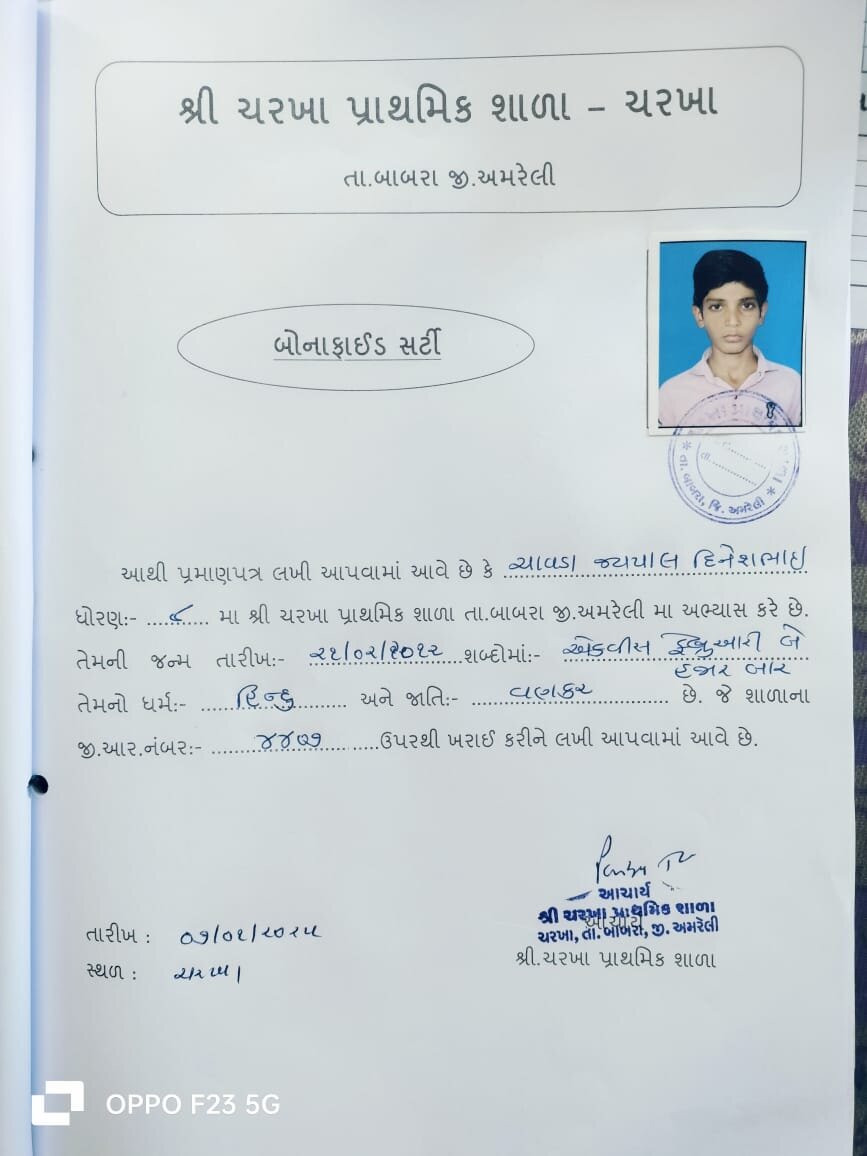 શ્રી ચરખા પ્રાથમિક શાળા – ચરખા
તા.બાબરા જી.અમરેલી
બોનાફાઈડ સર્ટી
તા. બાબરા, જિ. અમરેલી
આથી પ્રમાણપત્ર લખી આપવામાં આવે છે કે ચાવડા જયપાલ દિનેશભાઇ
ધોરણ:- ......૮...... મા શ્રી ચરખા પ્રાથમિક શાળા તા.બાબરા જી.અમરેલી મા અભ્યાસ કરે છે.
તેમની જન્મ તારીખ:- ૨૧/૦૨/૨૦૧૨ શબ્દોમાં:- એકવીસ ફેબ્રુઆરી બે
હજાર બાર
તેમનો ધર્મ:- હિન્દુ અને જાતિ:- વણકર છે. જે શાળાના
જી.આર.નંબર:- ૪૪૭૭ ઉપરથી ખરાઈ કરીને લખી આપવામાં આવે છે.
આચાર્ય
શ્રી ચરખા પ્રાથમિક શાળા
ચરખા, તા. બાબરા, જી. અમરેલી
શ્રી.ચરખા પ્રાથમિક શાળા
તારીખ : ૦૭/૦૨/૨૦૨૫
સ્થળ : ચરખા
OPPO F23 5G